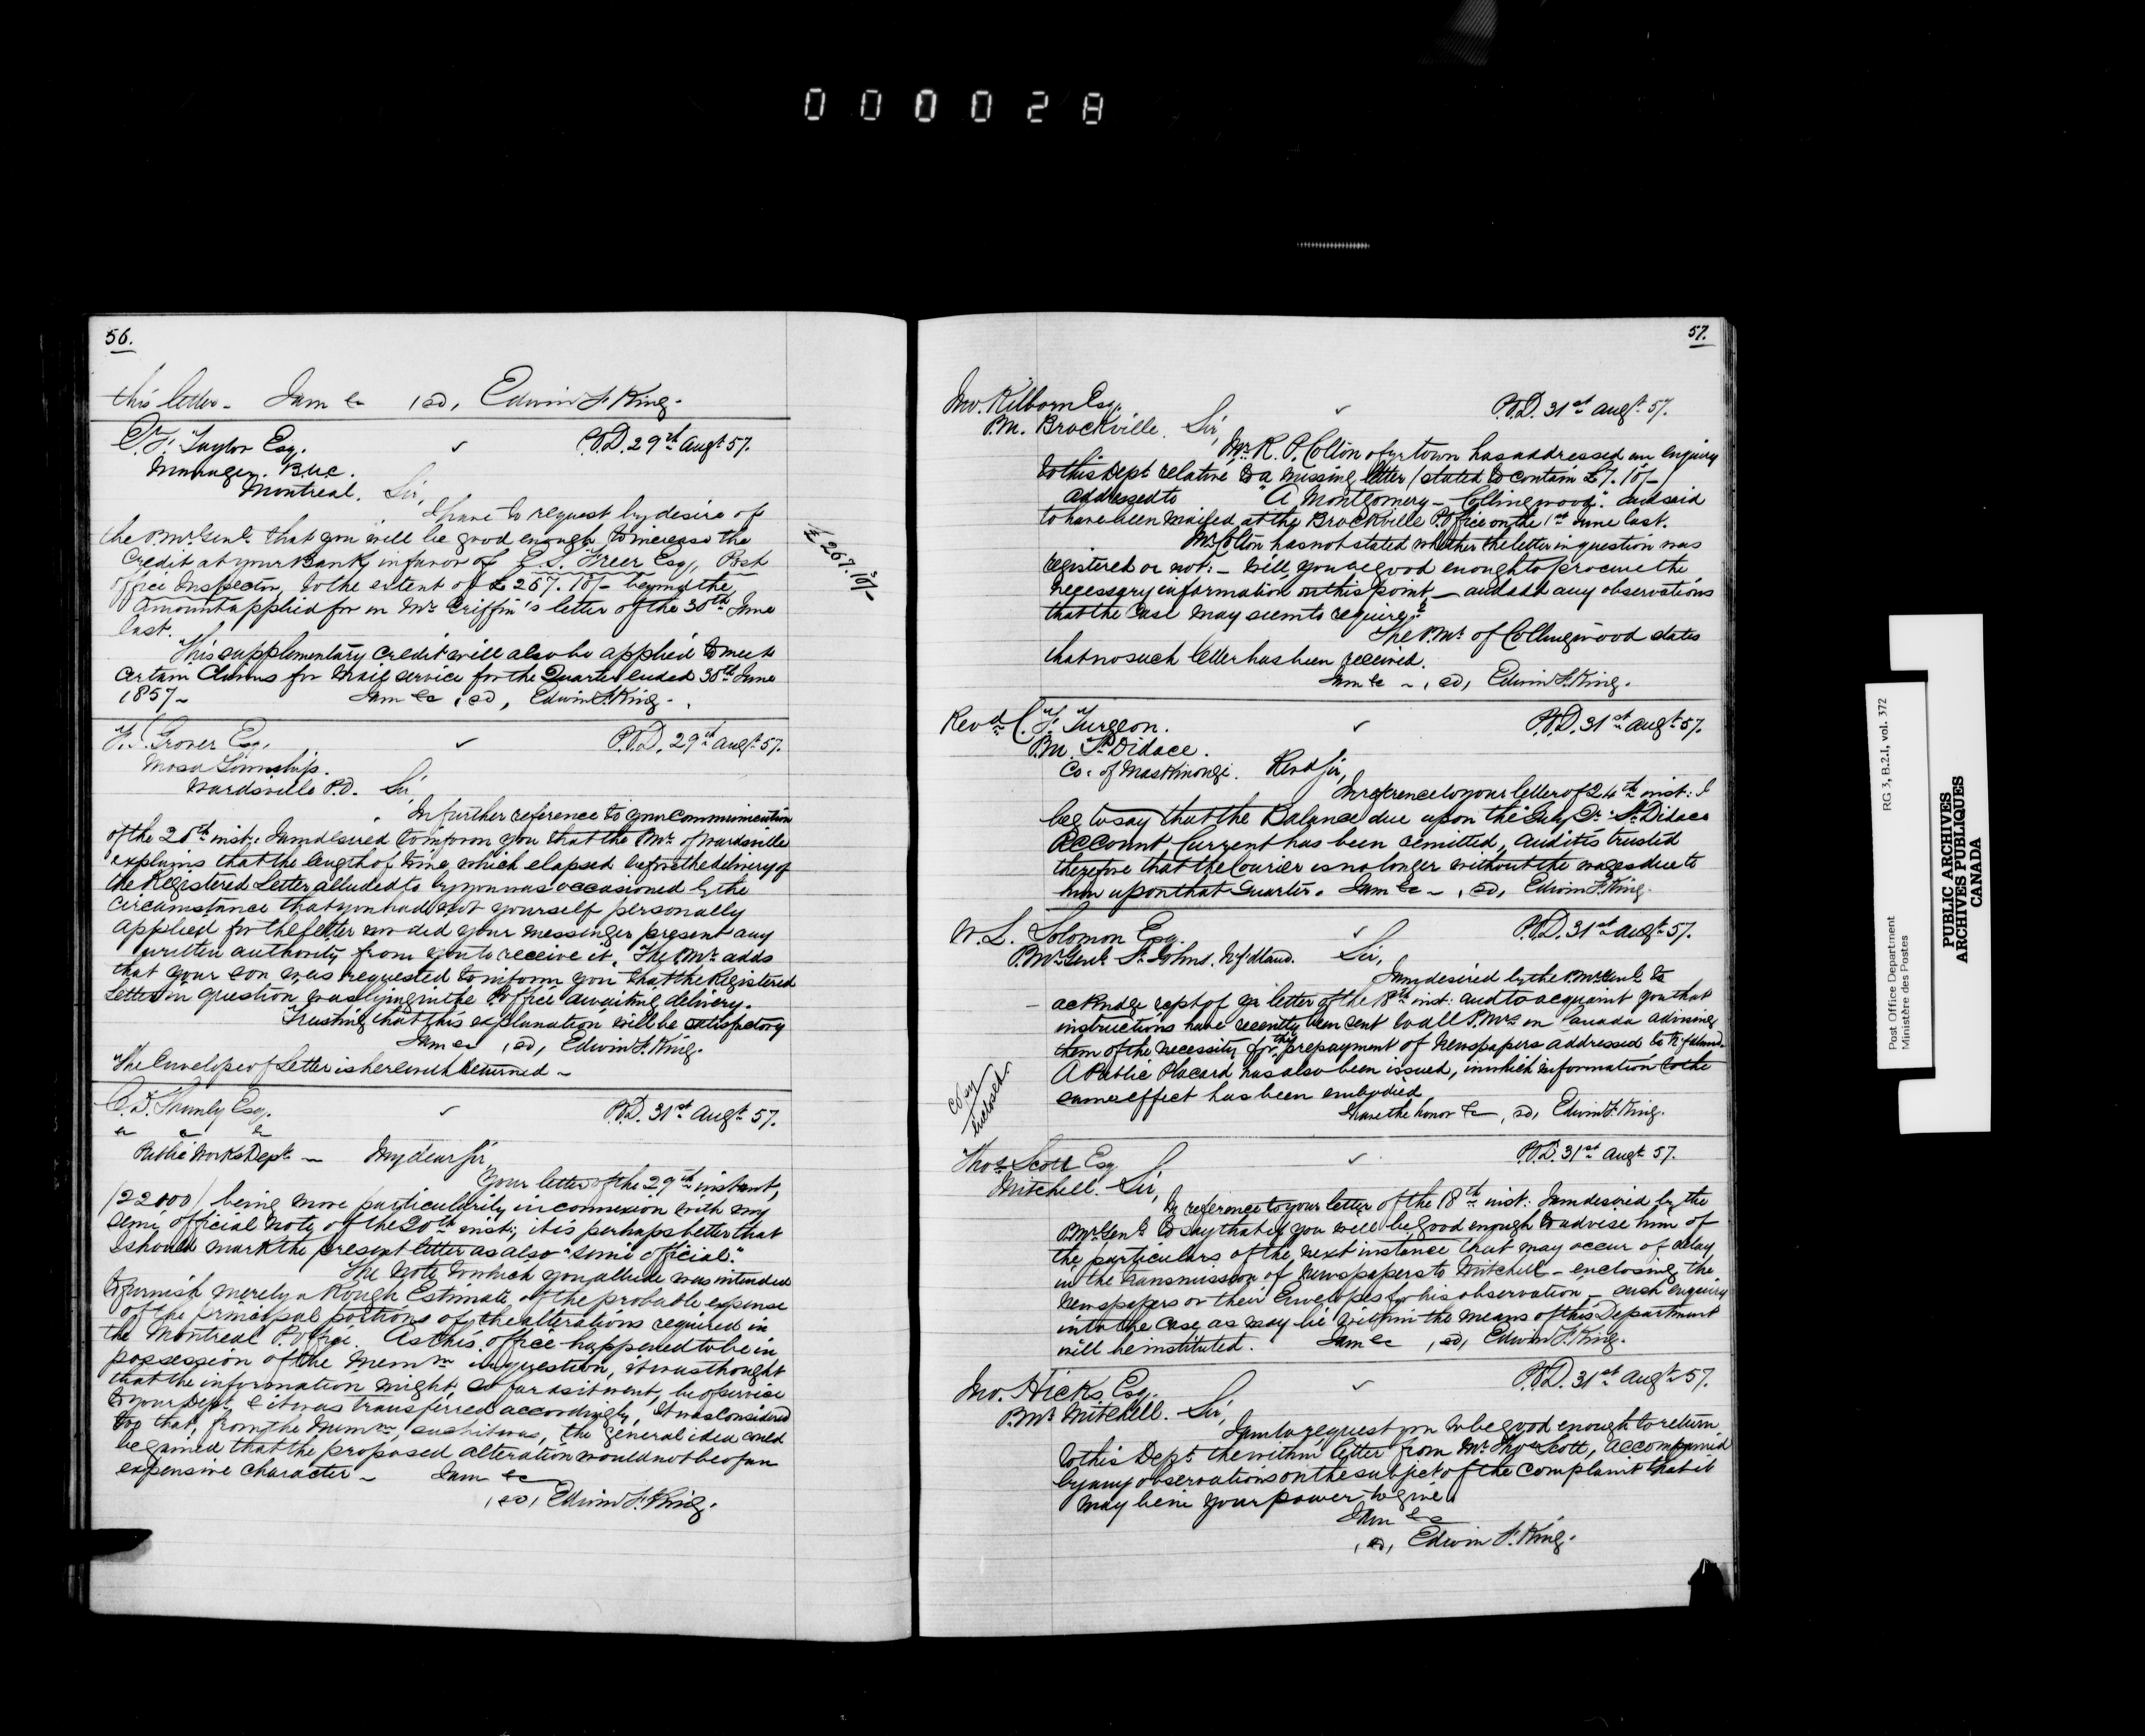 000028
56.
this letter. I am &c (sd) Edwin F. King.
T. Taylor Esq. P.O.D. 29th Augt 57.
Manager. B.U.C.
Montreal. Sir,
I have to request by desire of
the P.Mr. Genl. that you will be good enough to increase the
credit at your Bank, in favor of E.S. Freer Esq, Post
Office Inspector, to the extent of £267.10/- beyond the
amount applied for in Mr Griffin's letter of the 30th June
last.
£267.10/-
This supplementary credit will also be applied to meet
certain Claims for Mail service for the Quarter ended 30th June
1857 - I am &c (sd) Edwin F. King.
Grover Esq. P.O.D. 29th Augt 57.
Mosa Township.
Wardsville P.O. Sir,
In further reference to your communication
of the 20th inst: I am desired to inform you that the P.Mr. of Wardsville
explains that the length of time which elapsed before the delivery of
the Registered Letter alluded to by you was occasioned by the
circumstance that you had not yourself personally
applied for the letter nor did your messenger present any
written authority from you to receive it. The P.Mr. adds
that your son was requested to inform you that the Registered
Letter in question was lying in the P. Office awaiting delivery.
Trusting that this explanation will be satisfactory
I am &c (sd) Edwin F. King.
The Envelope of Letter is herewith returned -
Esq. P.O.D. 31st Augt 57.
&c &c &c
Public Works Dept - My dear Sir,
Your letter of the 29th instant,
(22000) being more particularily in connexion with my
semi official note of the 20th inst; it is perhaps better that
I should mark the present letter as also "semi official".
The note to which you allude was intended
to furnish merely a Rough Estimate of the probable expense
of the principal portions of the alterations required in
the Montreal P. Office. As this office happened to be in
possession of the Memm in question, it was thought
that the information might, so far as it went, be of service
to your Dept, & it was transferred accordingly, It was considered
too that, from the Memm, such it was, the general idea could
be gained that the proposed alteration would not be of an
expensive character - I am &c
(sd) Edwin F. King.
57.
Jno. Kilborn Esq. P.O.D. 31st Augt 57.
P.M. Brockville. Sir,
Mr. R. P. Colton of yr town has addressed an enquiry
to this Dept relative to a missing letter (stated to contain £7.10/-)
addressed to "A Montgomery - Collingwood." and said
to have been mailed at the Brockville P. Office on the 1st June last.
Mr Colton has not stated whether the letter in question was
registered or not: - will you be good enough to procure the
necessary information on this point, - and add any observations
that the case may seem to require?
The P.Mr. of Collingwood states
that no such letter has been received.
I am &c - (sd) Edwin F. King.
Revd C. F. Turgeon. P.O.D. 31st Augt 57.
P.M. St Didace.
Co. of Maskinongé. Revd Sir,
In reference to your letter of 24th inst: I
beg to say that the Balance due upon the July Qr. St Didace
Account Current has been remitted, and it is trusted
therefore that the Courier is no longer without the wages due to
him upon that quarter. I am &c - (sd) Edwin F. King.
W. L. Solomon Esq. P.O.D. 31st Augt 57.
P.Mr. Genl. St. Johns. Nfdland. Sir,
I am desired by the P.Mr. Genl. to
ackndge rcpt of yr letter of the 18th inst: and to acquaint you that
instructions have recently been sent to all P.Mrs in Canada advising
them of the necessity for the prepayment of Newspapers addressed to Nfdland.
A Public Placard has also been issued, in which information to the
same effect has been embodied
Copy
Enclosed.
I have the honor &c, (sd) Edwin F. King.
Thos. Scott Esq P.O.D. 31st Augt 57.
Mitchell. Sir,
In reference to your letter of the 18th inst: I am desired by the
P.Mr. Genl. to say that if you will be good enough to advise him of
the particulars of the next instance that may occur of delay,
in the transmission of Newspapers to Mitchell - enclosing the
Newspapers or their Envelopes for his observation, - such enquiry
into the case as may lie within the means of this Department
will be instituted. I am &c (sd) Edwin F. King.
Jno. Hicks Esq. P.O.D. 31st Augt 57.
P.Mr. Mitchell. Sir,
I am to request you to be good enough to return
to this Dept. the within letter from Mr. Thos Scott, accompanied
by any observations on the subject of the complaint that it
may be in your power to give.
I am &c
(sd) Edwin F. King.
Post Office Department RG 3, B.2.I, vol. 372
Ministère des Postes
PUBLIC ARCHIVES
ARCHIVES PUBLIQUES
CANADA